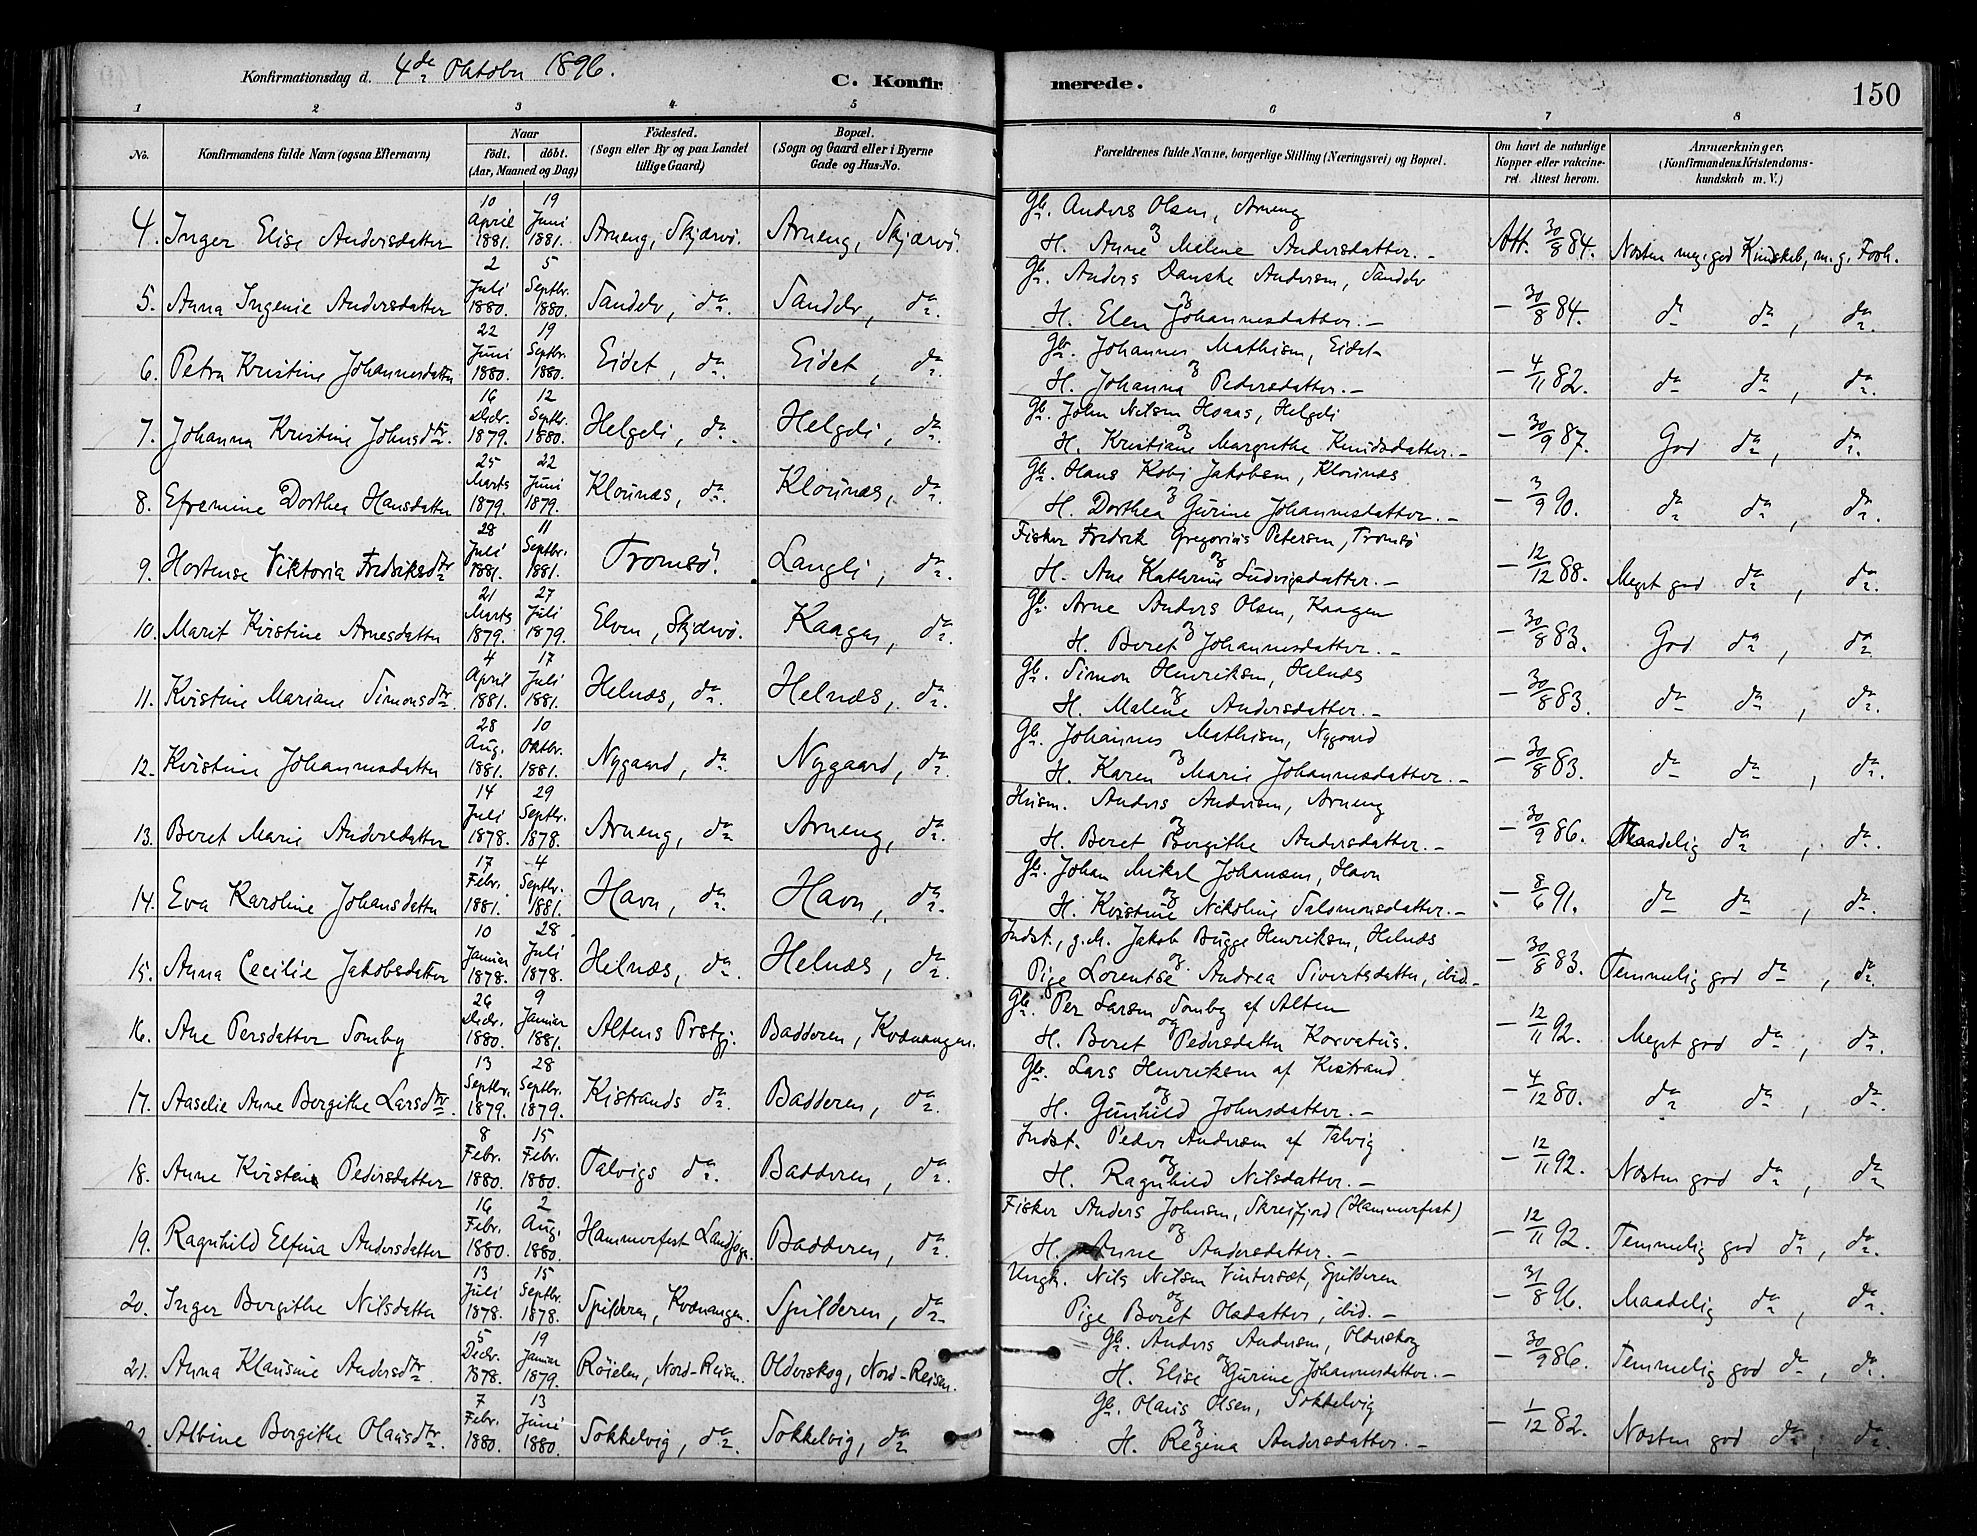 Konfirmationsdag d. 4de Oktober 1896.
C. Konfir merede.
150
1 2 3 4 5 6 7 8
No. Konfirmandens fulde Navn (ogsaa Efternavn)
Naar
født. døbt.
(Aar, Maaned og Dag)
Fødested.
(Sogn eller By og paa Landet
tillige Gaard)
Bopæl.
(Sogn og Gaard eller i Byerne
Gade og Hus-No.
Forældrenes fulde Navne, borgerlige Stilling (Næringsvei) og Bopæl.
Om havt de naturlige
Kopper eller vakcine-
ret. Attest herom.
Anmærkninger,
(Konfirmandens Kristendoms-
kundskab m. V.)
4. Inger Elise Andersdatter 10 April 1881. 19 Juni 1881. Arneng, Skjærvø. Arneng, Skjærvø. Gb. Anders Olsen, Arneng
og
H. Anne Malene Andersdatter. – Att. 30/8 84. Næsten meg. god Kundskab, m. g. Forh.
5. Anna Ingenie Andersdatter 2 Juli 1880. 5 Septbr. 1880. Sandelv, do. Sandelv, do. Gb. Anders Danske Andersen, Sandelv
og
H. Elen Johannesdatter. – – 30/8 84. do do, do.
6. Petra Kristine Johannesdatter 22 Juni 1880. 19 Septbr. 1880. Eidet, do. Eidet, do. Gbr. Johannes Mathisen, Eidet
og
H. Johanna Pedersdatter. – – 4/11 82. do do, do.
7. Johanna Kristine Johnsdtr. 16 Decbr. 1879. 12 Septbr. 1880. Helgeli, do. Helgeli, do. Gb. John Nilsen Hoaas, Helgeli
og
H. Kristiane Margrethe Knudsdatter. – – 30/9 87. God do, do.
8. Efremine Dorthea Hansdatter 25 Marts 1879. 22 Juni 1879. Klounæs, do. Klounæs, do. Gb. Hans Kobi Jakobsen, Klounæs
og
H. Dorthea Gurine Johannesdatter. – – 3/9 90. do do, do.
9. Hortense Viktoria Fredriksdtr 28 Juli 1881. 11 Septbr. 1881. Tromsø. Langli, do. Fisker Fredrik Gregorius Petersen, Tromsø
og
H. Ane Kathrine Ludvigsdatter. – – 12/12 88. Meget god do, do.
10. Marit Kirstine Arnesdatter 21 Marts 1879. 27 Juli 1879. Elven, Skjærvø. Kaagen, do. Gb. Arne Anders Olsen, Kaagen
og
H. Beret Johannesdatter. – – 30/8 83. God do, do.
11. Kirstine Mariane Simonsdtr 4 April 1881. 17 Juli 1881. Helnæs, do. Helnæs, do. Gb. Simon Henriksen, Helnæs
og
H. Malene Andersdatter. – – 30/8 83. do do, do.
12. Kirstine Johannesdatter 28 Aug. 1881. 10 Oktbr. 1881. Nygaard, do. Nygaard, do. Gb. Johannes Mathisen, Nygaard
og
H. Karen Marie Johannesdatter. – – 30/8 83. do do, do.
13. Beret Marie Andersdatter 14 Juli 1878. 29 Septbr. 1878. Arneng, do Arneng, do. Husm. Anders Andersen, Arneng
og
H. Beret Bergithe Andersdatter. – – 30/9 86. Maadelig do, do.
14. Eva Karoline Johansdatter 17 Febr. 1881. 4 Septbr. 1881. Havn, do. Havn, do. Gb. Johan Mikal Johansen, Havn
og
H. Kirstine Nikoline Salomonsdatter. – – 8/6 91. do do, do.
15. Anna Cecilie Jakobsdatter 10 Januar 1878. 28 Juli 1878. Helnæs, do. Helnæs, do. Indst., g. M. Jakob Bugge Henriksen, Helnæs
og
Pige Lorentse Andrea Sivertsdatter, ibid. – – 30/8 83. Temmelig god do, do
16. Ane Persdatter Somby 26 Decbr. 1880. 9 Januar 1881. Altens Prstgj. Badderen, Kvænangen. Gb. Per Larsen Somby af Alten
og
H. Beret Pedersdatter Korvatus. – 12/11 92. Meget god do, do.
17. Aaselie Anne Bergithe Larsdtr 13 Septbr. 1879. 28 Septbr. 1879. Kistrands do. Badderen, do. Gbr. Lars Henriksen af Kistrand
og
H. Gunhild Johnsdatter. – – 4/12 80. do do, do.
18. Anne Kirstine Pedersdatter 8 Febr. 1880. 15 Febr. 1880. Talvigs do. Badderen, do. Indst. Peder Andersen af Talvig
og
H. Ragnhild Nilsdatter. – – 12/11 92. Næsten god do, do
19. Ragnhild Elfina Andersdatter 16 Febr. 1880. 2 Aug. 1880. Hammerfest Landsogn. Badderen, do. Fisker Anders Johnsen, Skreifjord (Hammerfest)
og
H. Anne Andersdatter. – – 12/11 92. Temmelig god do, do.
20. Inger Bergithe Nilsdatter 13 Juli 1878. 15 Septbr. 1878. Spilderen, Kvænangen. Spilderen, do Ungk. Nils Nilsen Vintersæt, Spilderen
og
Pige Beret Olsdatter, ibid. – – 31/8 96. Maadelig do, do.
21. Anna Klausine Andersdtr 5 Decbr. 1878. 19 Januar 1879. Røielen, Nord-Reisen. Olderskog, Nord-Reisen. Gb. Anders Andersen, Olderskog
og
H. Elise Gurine Johannesdatter. – – 30/9 86. Temmelig god do, do.
Albine Bergithe Olausdtr 7 Febr. 1880. 13 Juni 1880. Sokkelvig, do. Sokkelvig, do Gb. Olaus Olsen, Sokkelvig
og
H. Regina Andersdatter. – – 1/12 82. Næsten god do, do.